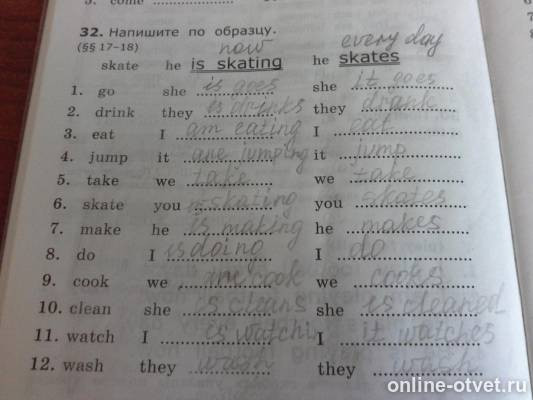 5. come
32. Напишите по образцу.
(§§ 17–18) now every day
skate he is skating he skates
1. go she is goes she it goes
2. drink they is drinks they drank
3. eat I am eating I eat
4. jump it are jumping it jump
5. take we take we take
6. skate you is skating you skates
7. make he is making he makes
8. do I is doing I do
9. cook we are cook we cooks
10. clean she is cleans she is cleaned
11. watch I is watchi I it watches
12. wash they wash they wash
online-otvet.ru